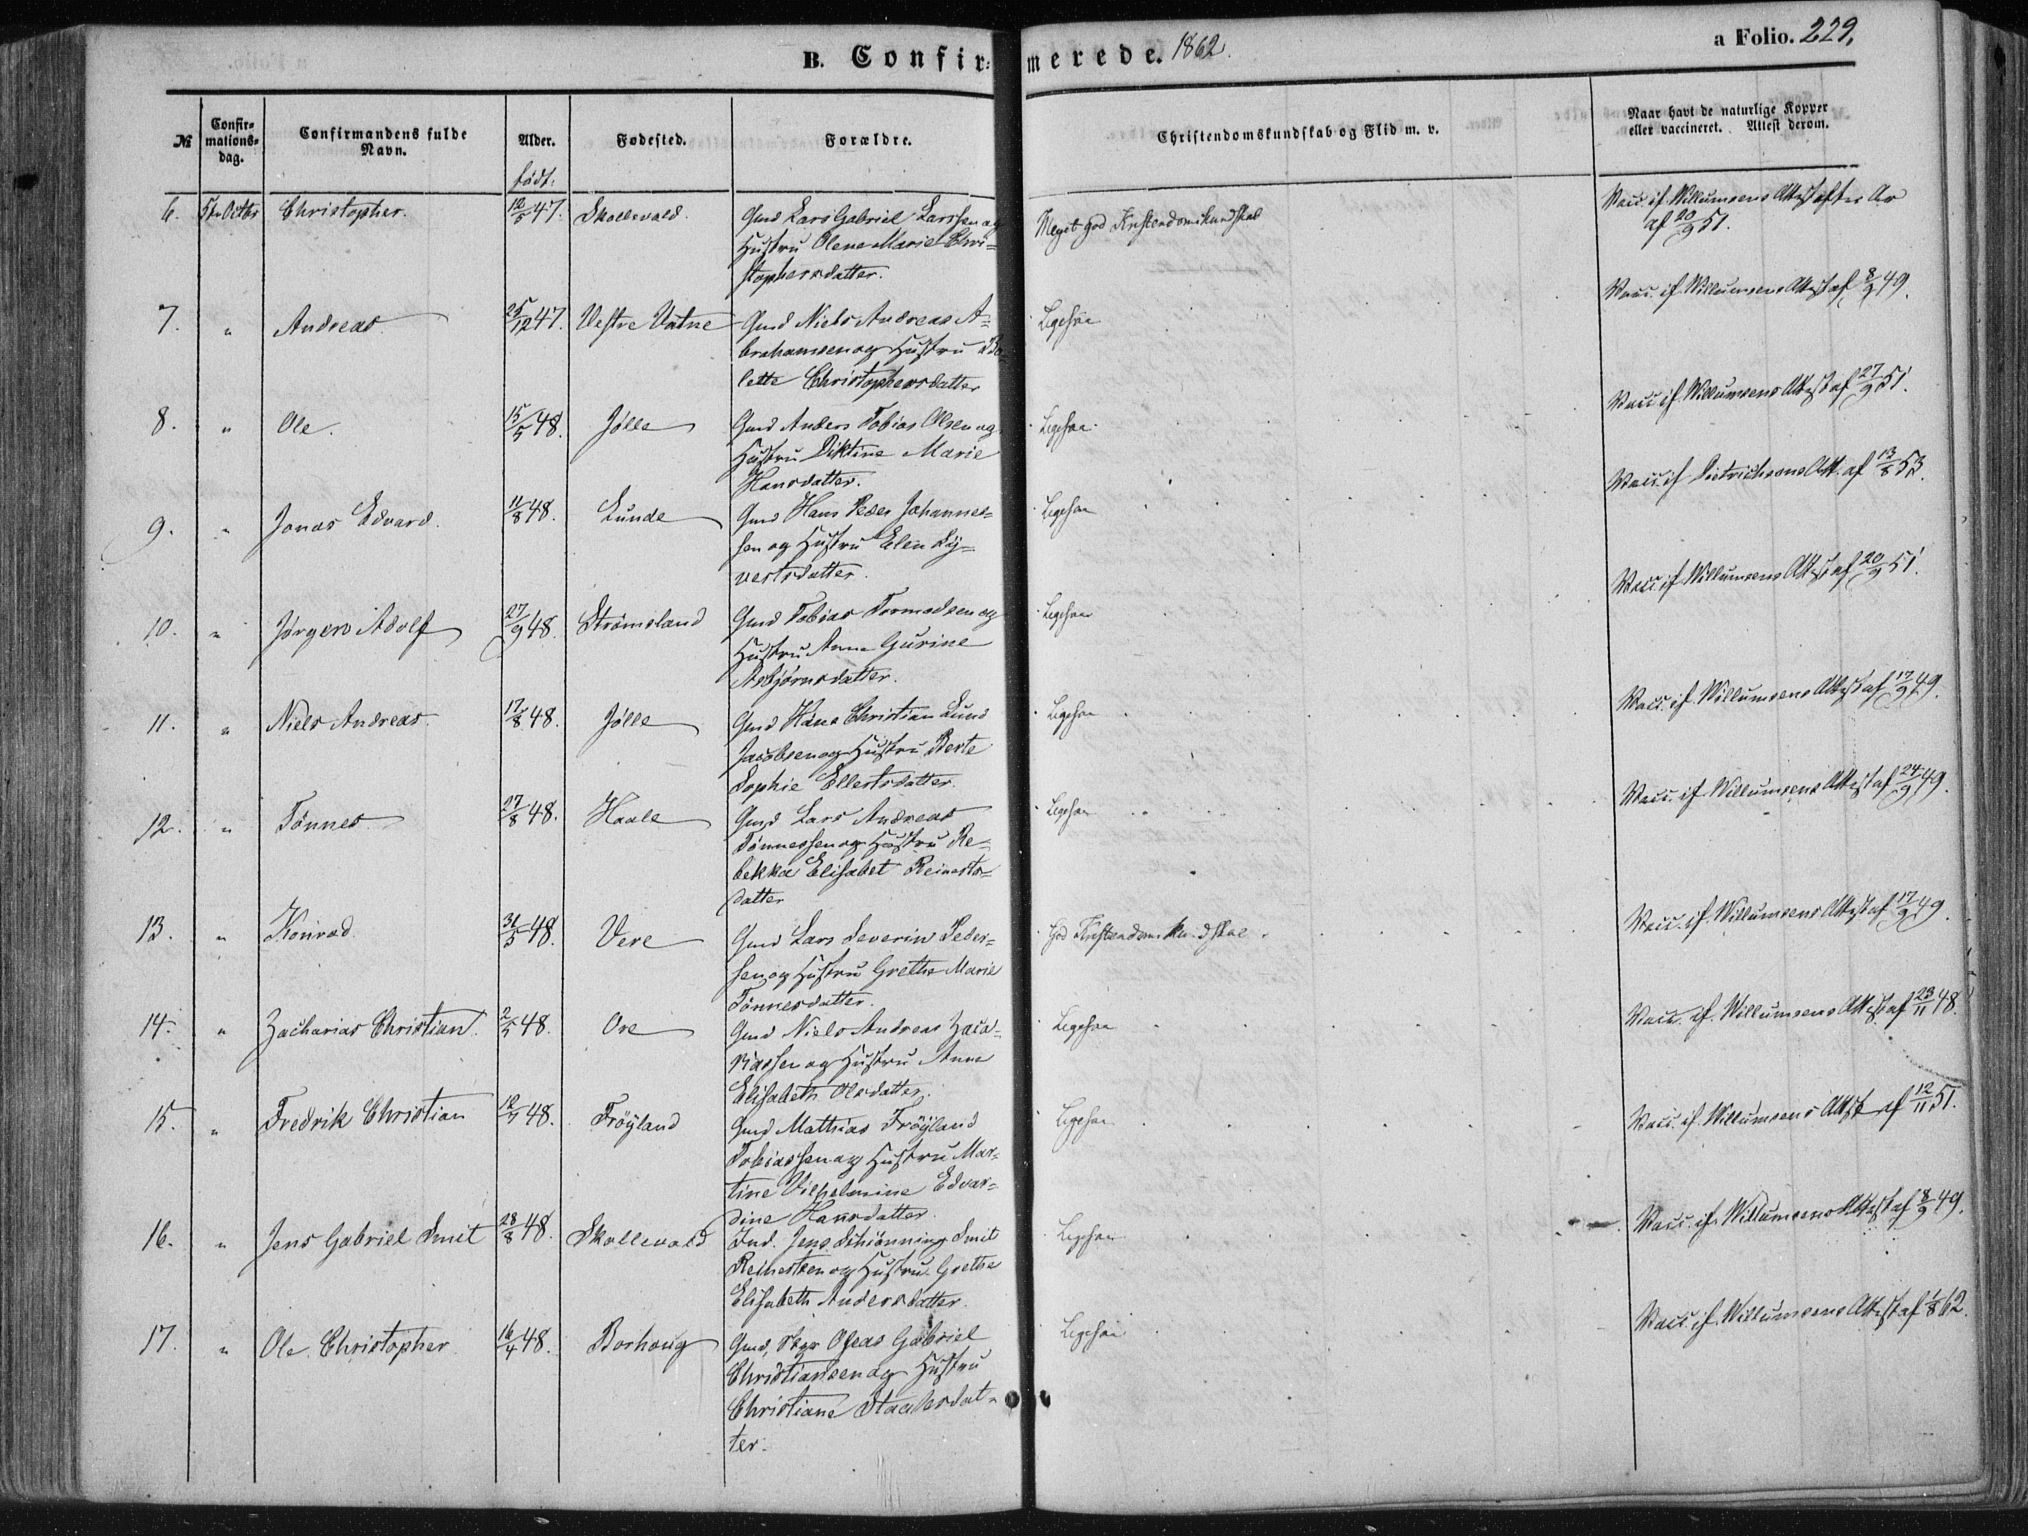 B. Confir=merede. 1862.
a Folio. 229.
№
Confir=
mations=
dag.
Confirmandens fulde
Navn.
Alder.
Fødested.
Forældre.
Christendomskundskab og Flid m. v.
Naar havt de naturlige Kopper
eller vaccineret. Attest derom.
født:
6. 5te Octbr Christopher. 12/5 47. Skollevold. Gmd Lars Gabriel Larssen og Meget god Kristendomskundskab Vacc. if. Willumsens Attest
Hustru Olene Marie Chri= af 20/9 51.
stophersdatter.
7. " Andreas. 25/12 47. Vestre Vatne Gmd Niels Andreas A= Ligesaa Vacc. if. Willumsens Attest af 8/9 49.
brahamsen og Hustru Bo=
lette Christophersdatter
8. " Ole. 15/5 48. Jølle Gmd Anders Tobias Olsen og Ligesaa Vacc. if. Willumsens Attest af 27/9 51.
Hustru Diktine Marie
Hansdatter.
9. " Jonas Edvard. 11/8 48. Lunde Gmd Hans Peder Johannes= Ligesaa Vacc. if. Dietrichsons Att. af 13/8 53.
sen og Hustru Elen Sy=
vertsdatter.
10. " Jørgen Adolf 27/9 48. Strømsland Gmd Tobias Tormodsen og Ligesaa Vacc. if. Willumsens Attest af 20/9 51.
Hustru Anne Gurine
Asbjørnsdatter.
11. " Niels Andreas. 17/8 48. Jølle Gmd Hans Christian Lund Ligesaa Vacc. if. Willumsens Attest af 17/9 49.
Jacobsen og Hustru Berte
Sophie Ellertsdatter.
12. " Tønnes 27/8 48. Haale Gmd Lars Andreas Ligesaa Vacc. if. Willumsens Attest af 24/9 49.
Tønnessen og Hustru Re=
bekka Elisabet Reinerts=
datter
13. " Konrad. 31/5 48. Vere Gmd Lars Severin Peder= God Kristendomskundskab. Vacc. if. Willumsens Attest af 17/9 49.
sen og Hustru Grethe Marie
Tønnesdatter.
14. " Zacharias Christian. 2/5 48. Ore Gmd Niels Andreas Zaca= Ligesaa Vacc. if. Willumsens Attest af 23/11 48.
riassen og Hustru Anne
Elisabeth Olsdatter.
15. " Fredrik Christian 12/7 48. Frøyland Gmd Mathias Frøyland Ligesaa Vacc. if. Willumsens Attest af 12/11 51.
Tobiassen og Hustru Mar=
tine Vilhelmine Edvar=
dine Hansdatter.
16. " Jens Gabriel Smit 28/8 48. Skollevold Ind. Jens Schiønning Smit Ligesaa Vacc. if. Willumsens Attest af 8/9 49.
Reinertsen og Hustru Grethe
Elisabeth Andersdatter.
17. " Ole Christopher. 16/4 48. Borhoug Gmd, Oseas Gabriel Ligesaa Vacc. if. Willumsens Attest af 1/8 62.
Christiansen og Hustru
Christiane datter.